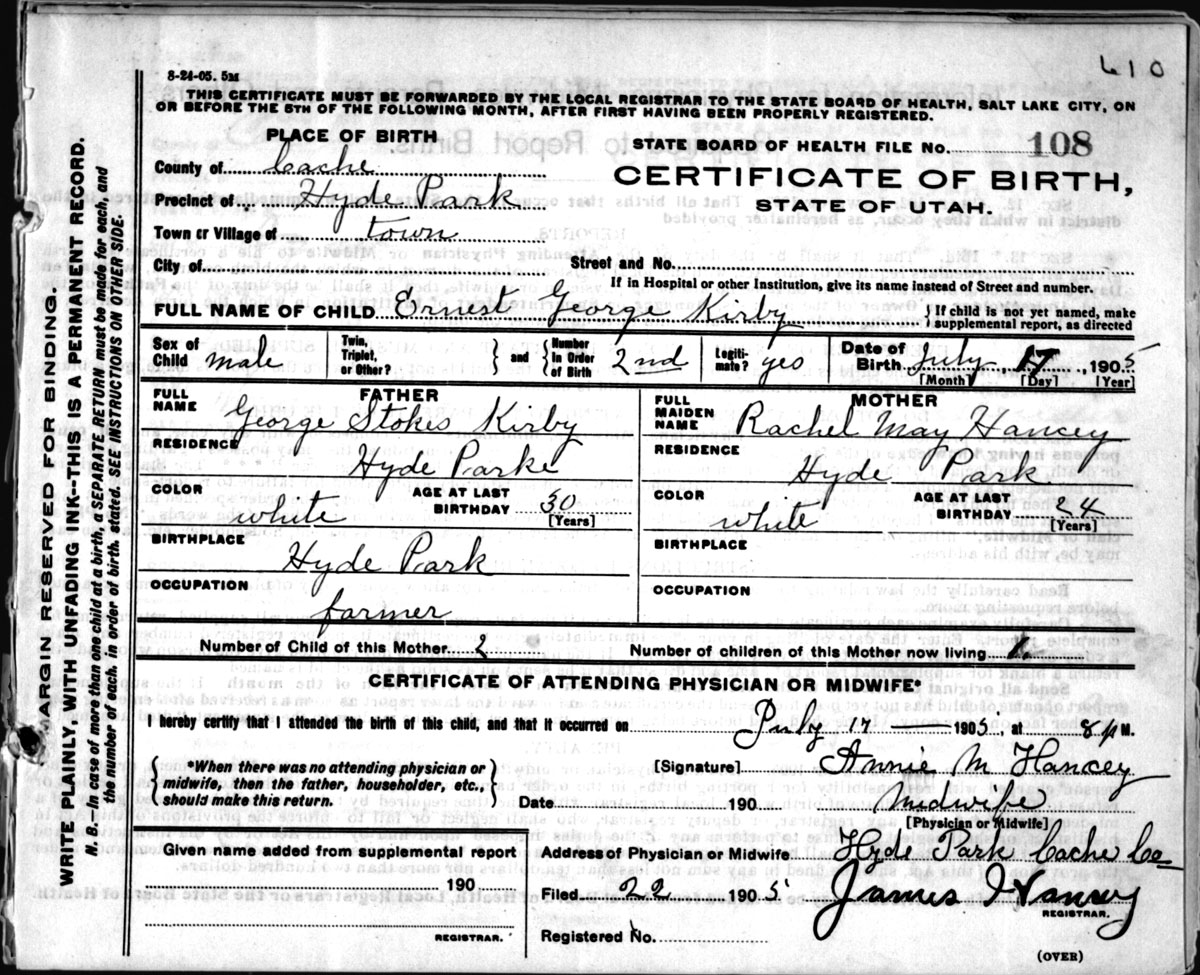 610
8-24-05. 5M
THIS CERTIFICATE MUST BE FORWARDED BY THE LOCAL REGISTRAR TO THE STATE BOARD OF HEALTH, SALT LAKE CITY, ON
OR BEFORE THE 5TH OF THE FOLLOWING MONTH, AFTER FIRST HAVING BEEN PROPERLY REGISTERED.
PLACE OF BIRTH
STATE BOARD OF HEALTH FILE No. 108
County of Cache
CERTIFICATE OF BIRTH,
Precinct of Hyde Park
STATE OF UTAH.
Town cr Village of town
City of Street and No.
If in Hospital or other Institution, give its name instead of Street and number.
FULL NAME OF CHILD Ernest George Kirby } If child is not yet named, make
supplemental report, as directed
Sex of Child male Twin, Triplet, or Other? } and { Number In Order of Birth 2nd Legiti- mate? yes Date of Birth July, 17, 1905
[Month] [Day] [Year]
FATHER
FULL NAME George Stokes Kirby
RESIDENCE Hyde Parke
COLOR white AGE AT LAST BIRTHDAY 30 [Years]
BIRTHPLACE Hyde Park
OCCUPATION farmer
MOTHER
FULL MAIDEN NAME Rachel May Hancey
RESIDENCE Hyde Park
COLOR white AGE AT LAST BIRTHDAY 24 [Years]
BIRTHPLACE
OCCUPATION
Number of Child of this Mother 2 Number of children of this Mother now living 1
CERTIFICATE OF ATTENDING PHYSICIAN OR MIDWIFE*
I hereby certify that I attended the birth of this child, and that it occurred on July 17 1905, at 8 P M.
{ *When there was no attending physician or
midwife, then the father, householder, etc.,
should make this return. }
[Signature] Annie M Hancey
Date 190 Midwife
[Physician or Midwife]
Given name added from supplemental report
190
REGISTRAR.
Address of Physician or Midwife Hyde Park Cache Co
Filed 22 1905 James Hancey
REGISTRAR.
Registered No.
(OVER)
MARGIN RESERVED FOR BINDING.
WRITE PLAINLY, WITH UNFADING INK--THIS IS A PERMANENT RECORD.
N. B.--In case of more than one child at a birth, a SEPARATE RETURN must be made for each, and
the number of each, in order of birth, stated. SEE INSTRUCTIONS ON OTHER SIDE.